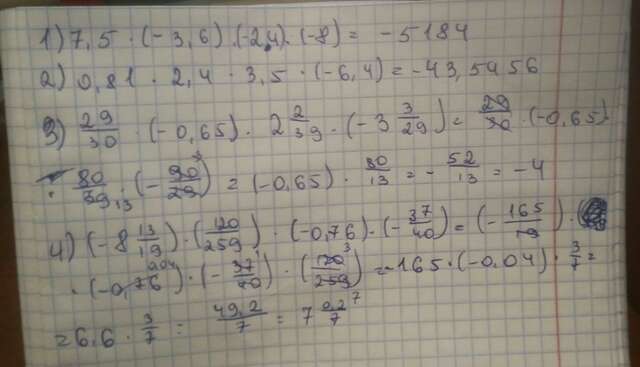 1) 7,5 · (-3,6) · (-2,4) · (-8) = -5184
2) 0,81 · 2,4 · 3,5 · (-6,4) = -43,5456
3) 29/30 · (-0,65) · 2 2/39 · (-3 3/29) = 29/30 · (-0,65) ·
· 80/39 · (-90/29) = (-0,65) · 80/13 = -52/13 = -4
4) (-8 13/19) · (120/259) · (-0,76) · (-37/40) = (-165/19) ·
· (-0,76) · (-37/40) · (120/259) = -165 · (-0,04) · 3/7 =
= 6,6 · 3/7 = 49,2/7 = 7 0,2/7